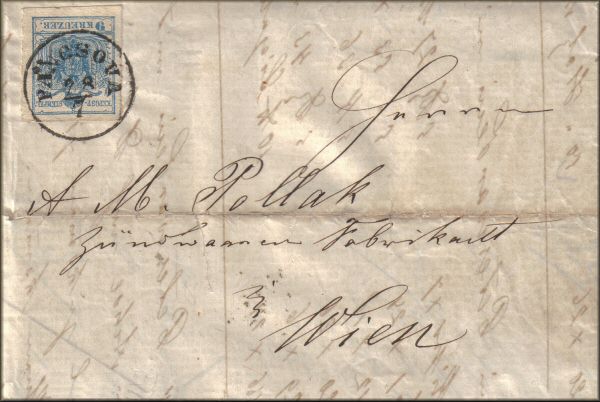 9 KREUZER
PANCSOVA
28
7
Herrn
A M. Pollak
Zündwaaren Fabrikant
Wien